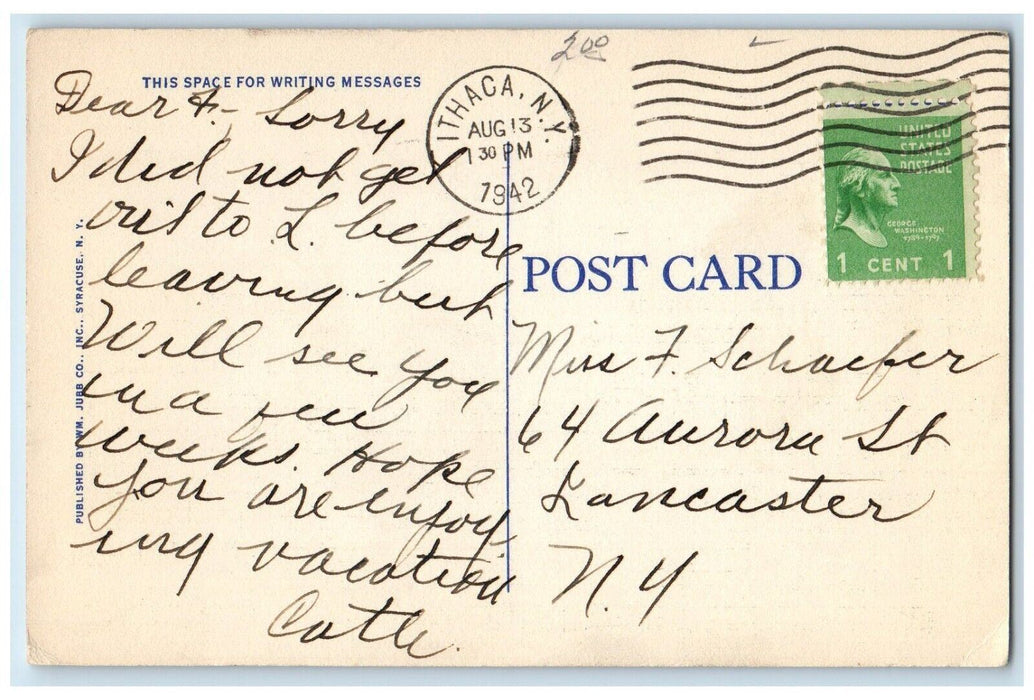 2.00
THIS SPACE FOR WRITING MESSAGES
ITHACA, N.Y.
AUG 13
1 30 PM
1942
UNITED
STATES
POSTAGE
GEORGE
WASHINGTON
1789-1797
1 CENT 1
Dear F.- Sorry
I did not get
out to L. before
leaving but
Will see you
in a few
weeks. Hope
you are enjoy
ing vacation
PUBLISHED BY WM. JUBB CO., INC., SYRACUSE, N. Y.
POST CARD
Miss F. Schaefer
64 Aurora St
Lancaster
N. Y